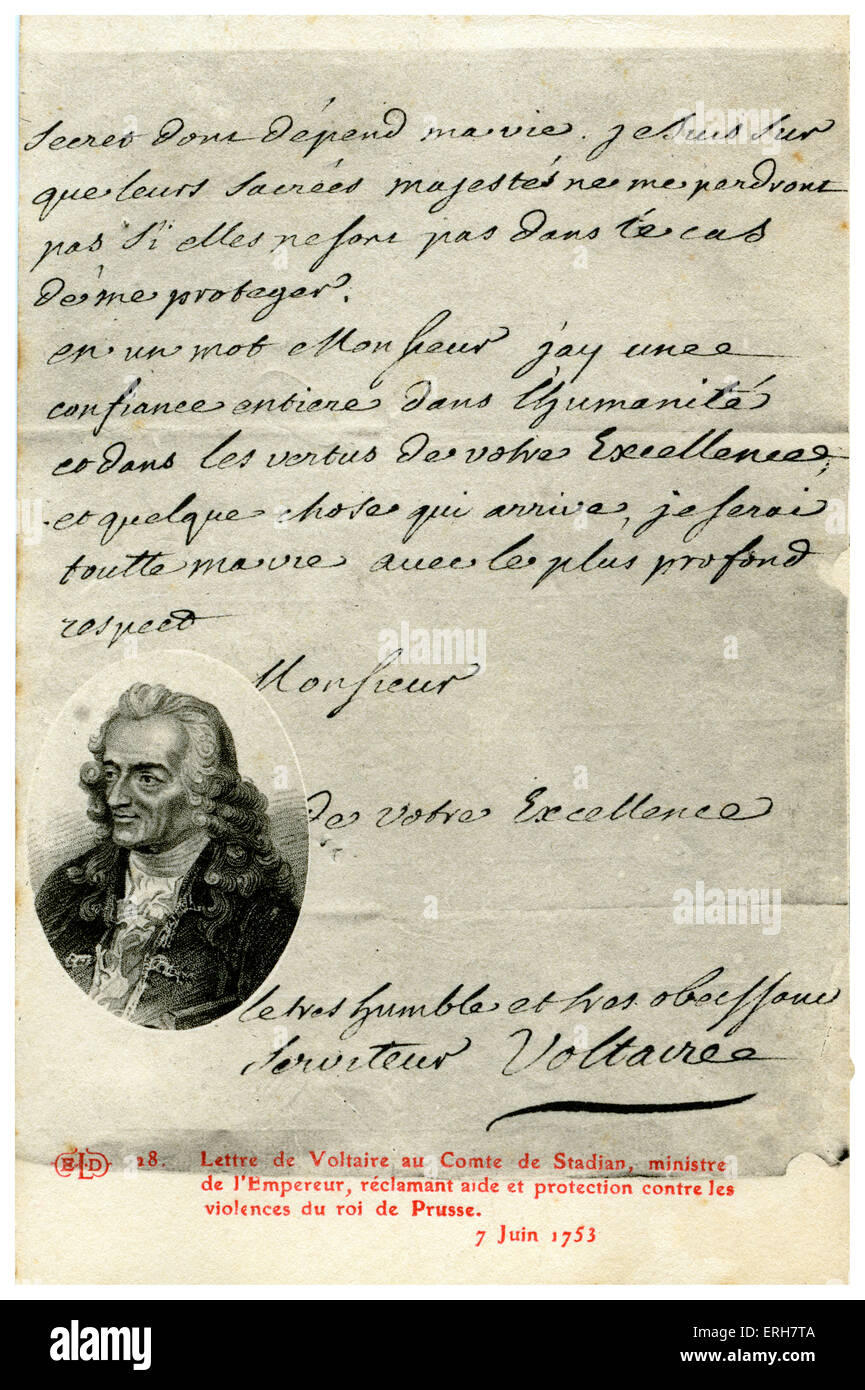 secret dont dépend ma vie. je suis sur
que leurs sacrées majestés ne me perdront
pas si elles ne sont pas dans le cas
de me proteger.
en un mot Monsieur j'ay une
confiance entiere dans l'humanité
et dans les vertus de votre Excellence,
et quelque chose qui arrive, je serai
toutte ma vie avec le plus profond
respect
Monsieur
de votre Excellence
le tres humble et tres obeissant
serviteur Voltaire
ELD 28. Lettre de Voltaire au Comte de Stadian, ministre
de l'Empereur, réclamant aide et protection contre les
violences du roi de Prusse.
7 Juin 1753
alamy
alamy stock photo
ERH7TA
www.alamy.com